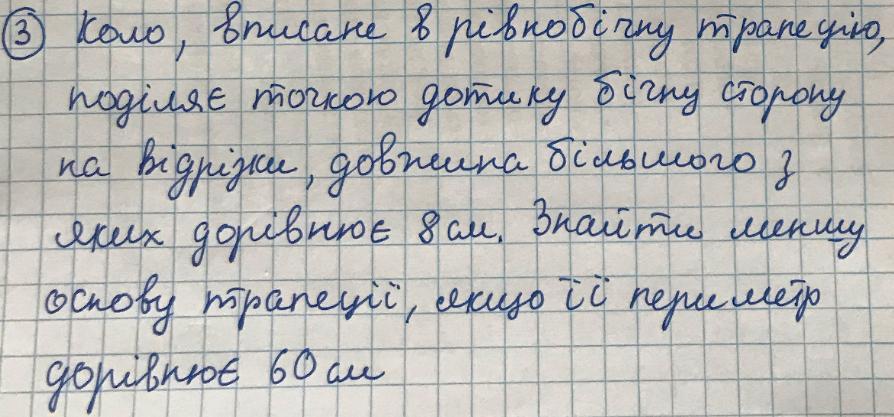 3 Коло, вписане в рівнобічну трапецію,
поділяє точкою дотику бічну сторону
на відрізки, довжина більшого з
яких дорівнює 8 см. Знайти меншу
основу трапеції, якщо її периметр
дорівнює 60 см